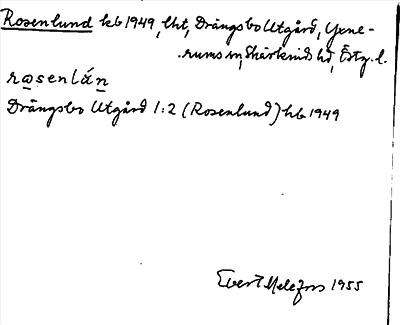 Rosenlund kb 1949, lht, Drängsbo Utgård, Yxne-
rums sn, Skärkinds hd, Östg. l.
rosenlán
Drängsbo Utgård 1:2 (Rosenlund) kb 1949
Evert Melefors 1955